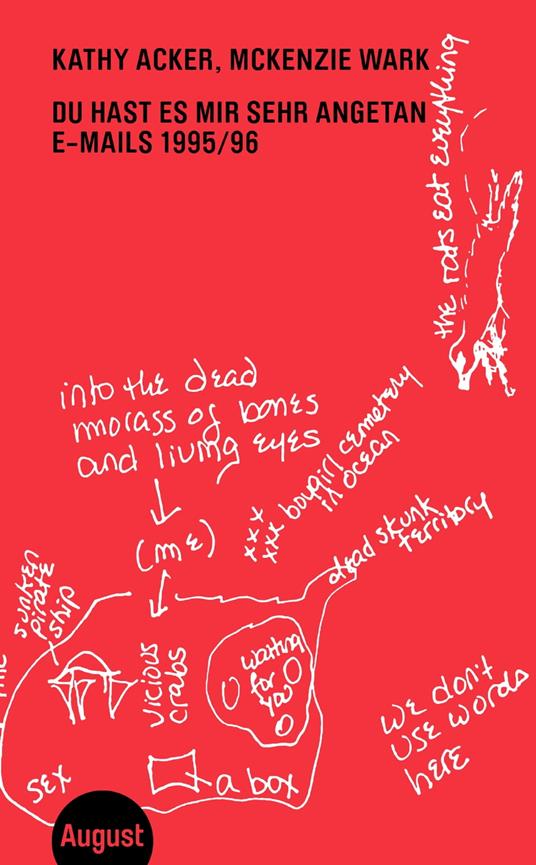 KATHY ACKER, MCKENZIE WARK
DU HAST ES MIR SEHR ANGETAN
E-MAILS 1995/96
the rats eat everything
into the dead
morass of bones
and living eyes
(mE)
xxx
xxx boygirl cemetery
in ocean
dead skunk
territory
sunken
pirate
ship
vicious
crabs
waiting
for
you
we don't
use words
here
sex
a box
August